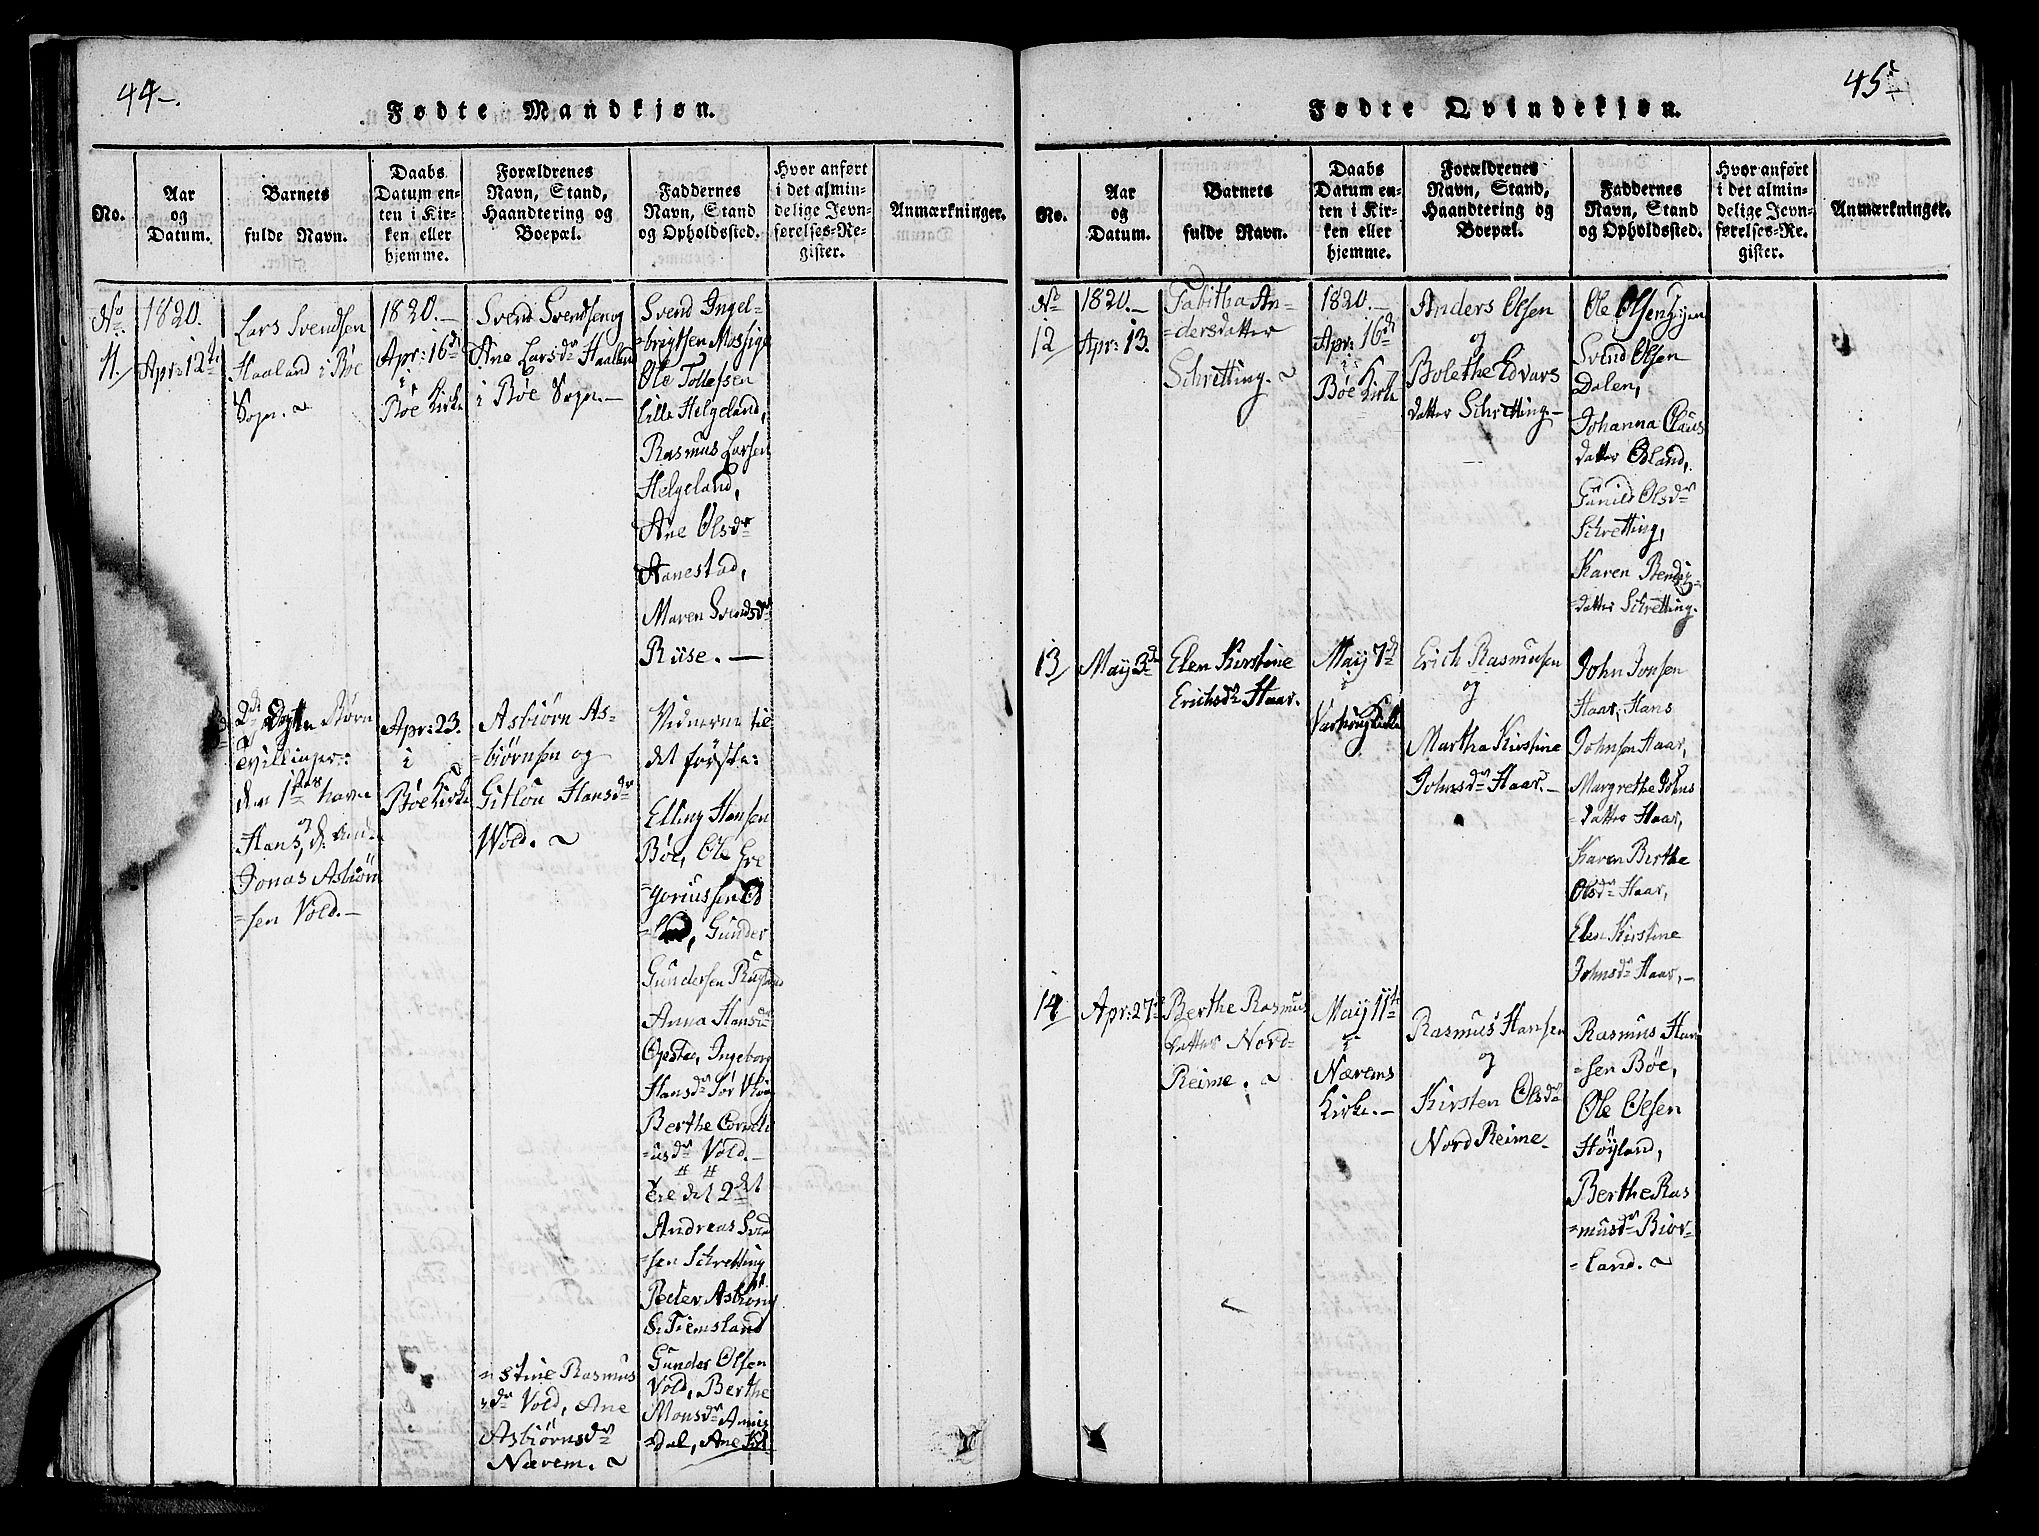 44.
Fødte Mandkjøn.
No.
Aar
og
Datum.
Barnets
fulde Navn.
Daabs
Datum en-
ten i Kir-
ken eller
hjemme.
Forældrenes
Navn, Stand,
Haandtering og
Boepæl.
Faddernes
Navn, Stand
og Opholdssted.
Hvor anført
i det almin-
delige Jevn-
førelses-Re-
gister.
Anmærkninger.
No
11.
1820.
Apr: 12te
Lars Svendsen
Haaland i Bøe
Sogn.
1820.
Apr: 16d
i
Bøe Kirke
Svend Svendsen og
Ane Larsdr Haaland
i Bøe Sogn.
Svend Ingel-
=brigtsen Mossige
Ole Tollefsen
Lille Helgeland,
Rasmus Larsen
Helgeland,
Ane Olsdr
Aanestad,
Maren Svendsdr
Ruse.
2de Børn
Tvillinger:
den 1stes navn
Hans, og d: An-
Jonas Asbiørn
=sen Vold.
Apr: 23.
i
Bøe Kirke
Asbiørn As-
=biørnsen og
Gitlou Hansdr
Wold.
Vidnerne til
det første:
Elling Hansen
Bøe, Ole Gre
=goriussen
Gunder
Gundersen
Anna Hansdr
Opsta, Ingeborg
Hansdr
Berthe Corneli
=usdr Vold.
det 2det
Andreas Svend
=sen Schretting
Peder Asbiørns
Tiemsland
Gunder Olsen
Vold, Berthe
Monsdr
=dal, Ane
=stine Rasmus
=dr Vold, Ane
Asbiørnsdr
Nærem.
45
Fødte Qvindekjøn.
No.
Aar
og
Datum.
Barnets
fulde Navn.
Daabs
Datum en-
ten i Kir-
ken eller
hjemme.
Forældrenes
Navn, Stand,
Haandtering og
Boepæl.
Faddernes
Navn, Stand
og Opholdssted.
Hvor anført
i det almin-
delige Jevn-
førelses-Re-
gister.
Anmærkninger.
No
12
1820.
Apr: 13.
Tabitha An-
=dersdatter
Schretting.
1820.
Apr: 16d
i
Bøe Kirke
Anders Olsen
og
Bolethe Edvars
datter Schretting.
Ole Olsen
Svend Olsen
Dalen,
Johanna Claus
datter Ødland,
Gunild Olsdr
Schretting,
Karen
=datter Schretting.
13
May 3d
Elen Kirstine
Erichsdr Haar.
May 7d
i
Varhoug Kirke
Erich Rasmusen
og
Martha Kirstine
Johnsdr Haar.
John Jonsen
Haar, Hans
Johnsen Haar,
Margrethe Johns
=datter Haar,
Karen Berthe
Olsdr Haar,
Elen Kirstine
Johnsdr Haar,
14
Apr: 27
Berthe Rasmus
datter Nord-
Reime.
May 11te
i
Nærems
Kirke.
Rasmus Hansen
og
Kirsten Olsdr
Nord Reime.
Rasmus Han
=sen Bøe,
Ole Olsen
Høyland,
Berthe Ras
=musdr Bior-
=land.